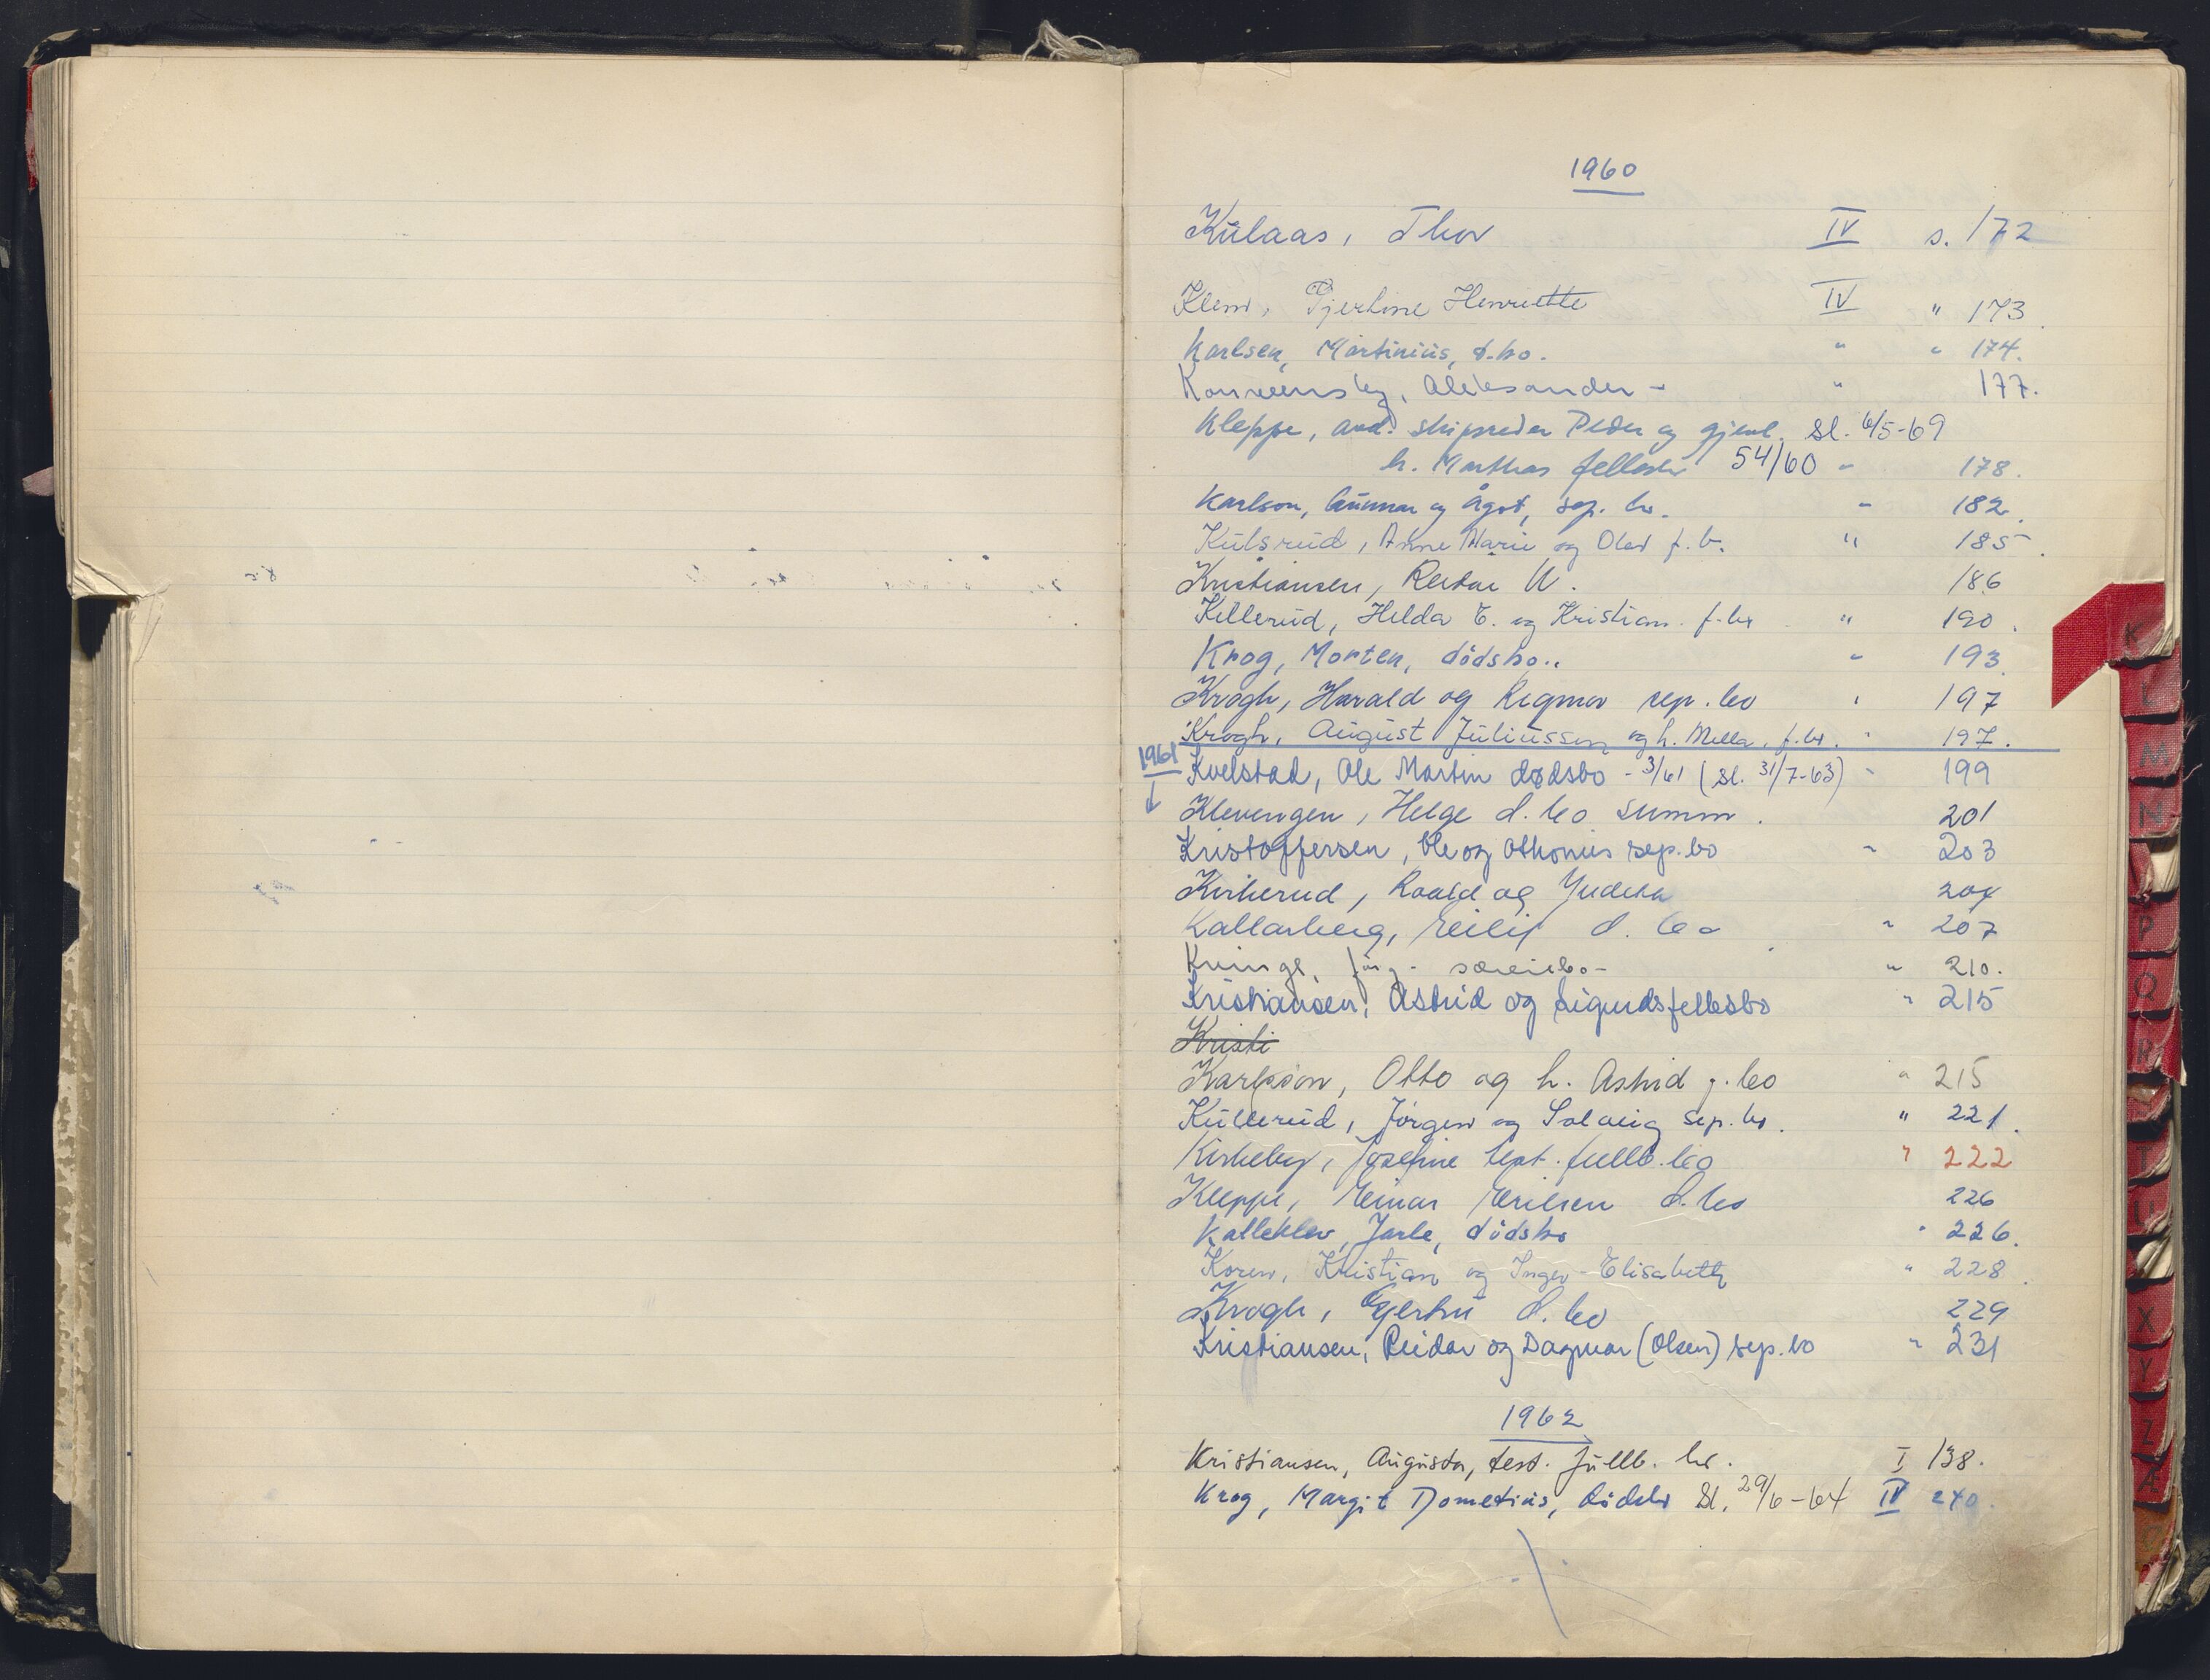 1960
Kulaas, Thor IV s. 172
Klem, Henriette IV " 173
Karlsen, Martinius, d.bo. " " 174.
Aleksander - " 177.
Kleppe, avd. skipsreder Peder og gjenl. sl. 6/5-69
h. Marthas fellesbo 54/60 " 178.
Karlson, Gunnar og Ågot, sep. bo. " 182.
Kulsrud, Anne Marie og Olav f.b. " 185.
Kristiansen, Reidar 186
Killerud, Helda E. og Kristian f.bo " 190.
Krog, Morten, dödsbo.. " 193.
Krogh, Harald og Ragmor sep. bo " 197
Krogh, August Juliussen og h. Mella, f.bo. " 197.
1961
Kvelstad, Ole Martin dødsbo - 3/61 (sl. 31/7-63) " 199
Klevengen, Helge d. bo summ. 201
Kristoffersen, Ole og Othonius sep. bo " 203
Kirkerud, Roald og 204
Kallarberg, Eilif d. bo " 207
" 210.
Kristiansen, Astrid og Sigurds fellesbo " 215
Kristi
Karlsson, Otto og h. Astrid f. bo " 215
Kullerud, Jörgen og Solveig sep. bo. " 221.
Kirkeby, Josefine test. fullb. bo " 222
Kleppe, Einar Eriksen d. bo 226
Kalleklev, Jarle, dödsbo " 226.
Koren, Kristian og Inger-Elisabeth " 228.
Krogh, d. bo 229
Kristiansen, Reidar og Dagmar (Olsen) sep. bo " 231
1962
Kristiansen, Augusta, test. fullb. bo. I 138.
Krog, Margit Dometius, dödsbo Sl. 29/6-64 IV 240.
K
L
M
N
P
Q
R
T
U
X
Y
Z
Æ